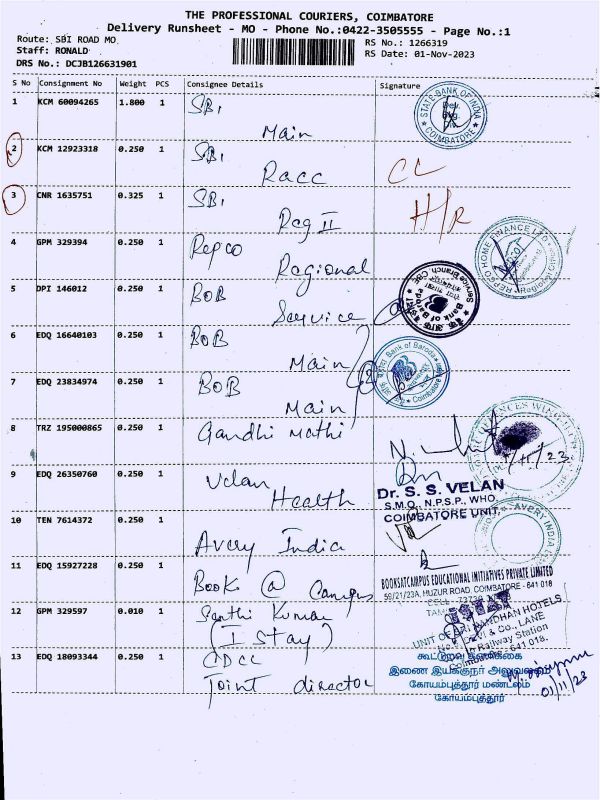 THE PROFESSIONAL COURIERS, COIMBATORE
Delivery Runsheet - MO - Phone No.:0422-3505555 - Page No.:1
Route: SBI ROAD MO.
Staff: RONALD
DRS No.: DCJB126631901
RS No.: 1266319
RS Date: 01-Nov-2023
S No Consignment No Weight PCS Consignee Details Signature
1 KCM 60094265 1.800 1 SBI
Main
STATE BANK OF INDIA
COIMBATORE
2 KCM 12923318 0.250 1 SBI
Racc CC
3 CNR 1635751 0.325 1 SBI
Reg II H/R
4 GPM 329394 0.250 1 Repco
Regional
REPCO HOME FINANCE LTD.
5 DPI 146012 0.250 1 BOB
Service
Bank of Baroda
Service Branch, CBE
6 EDQ 16640103 0.250 1 BOB
Main
Bank of Baroda
7 EDQ 23834974 0.250 1 BOB
Main
8 TRZ 195000865 0.250 1 Gandhi Mathi
9 EDQ 26350760 0.250 1 Velan
Health
Dr. S. S. VELAN
S.M.O., N.P.S.P., WHO
COIMBATORE UNIT,
10 TEN 7614372 0.250 1
Avery India
AVERY INDIA
11 EDQ 15927228 0.250 1 Book @ Campus
BOOKSATCAMPUS EDUCATIONAL INITIATIVES PRIVATE LIMITED
59/21/23A, HUZUR ROAD, COIMBATORE - 641 018
12 GPM 329597 0.010 1 Santhi Kumar
(I Stay)
HOTELS
LANE
Railway Station
Coimbatore - 641 018.
13 EDQ 18093344 0.250 1 CDCC
Joint director
இணை இயக்குநர் அலுவலகம்
கோயம்புத்தூர் மண்டலம்
கோயம்புத்தூர்
01/11/23